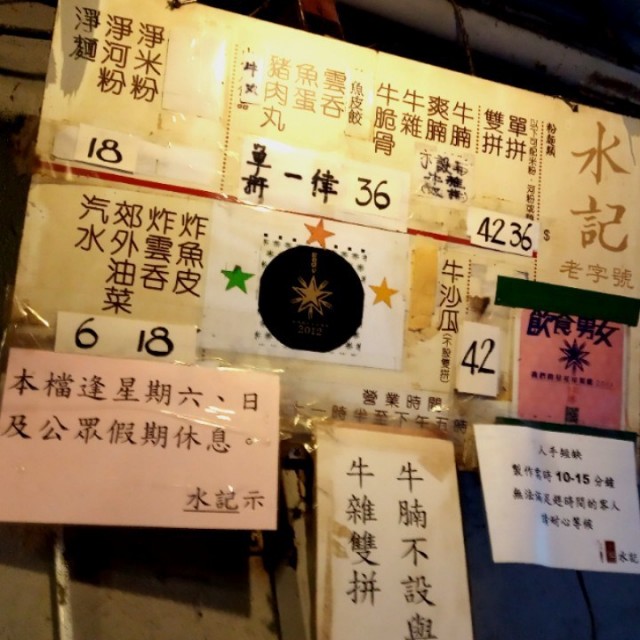 水記
老字號
單拼
雙拼
$
36
42
牛腩
爽腩
牛雜
牛脆骨
魚皮餃
雲吞
魚蛋
豬肉丸
單拼一律 36
淨米粉
淨河粉
淨麵
18
牛沙瓜
42
炸魚皮
炸雲吞
郊外油菜
汽水
18
6
2012
營業時間
飲食男女
本檔逢星期六、日
及公眾假期休息。
水記示
牛腩不設與
牛雜雙拼
人手短缺
製作需時 10-15 分鐘
無法滿足趕時間的客人
請耐心等候
水記